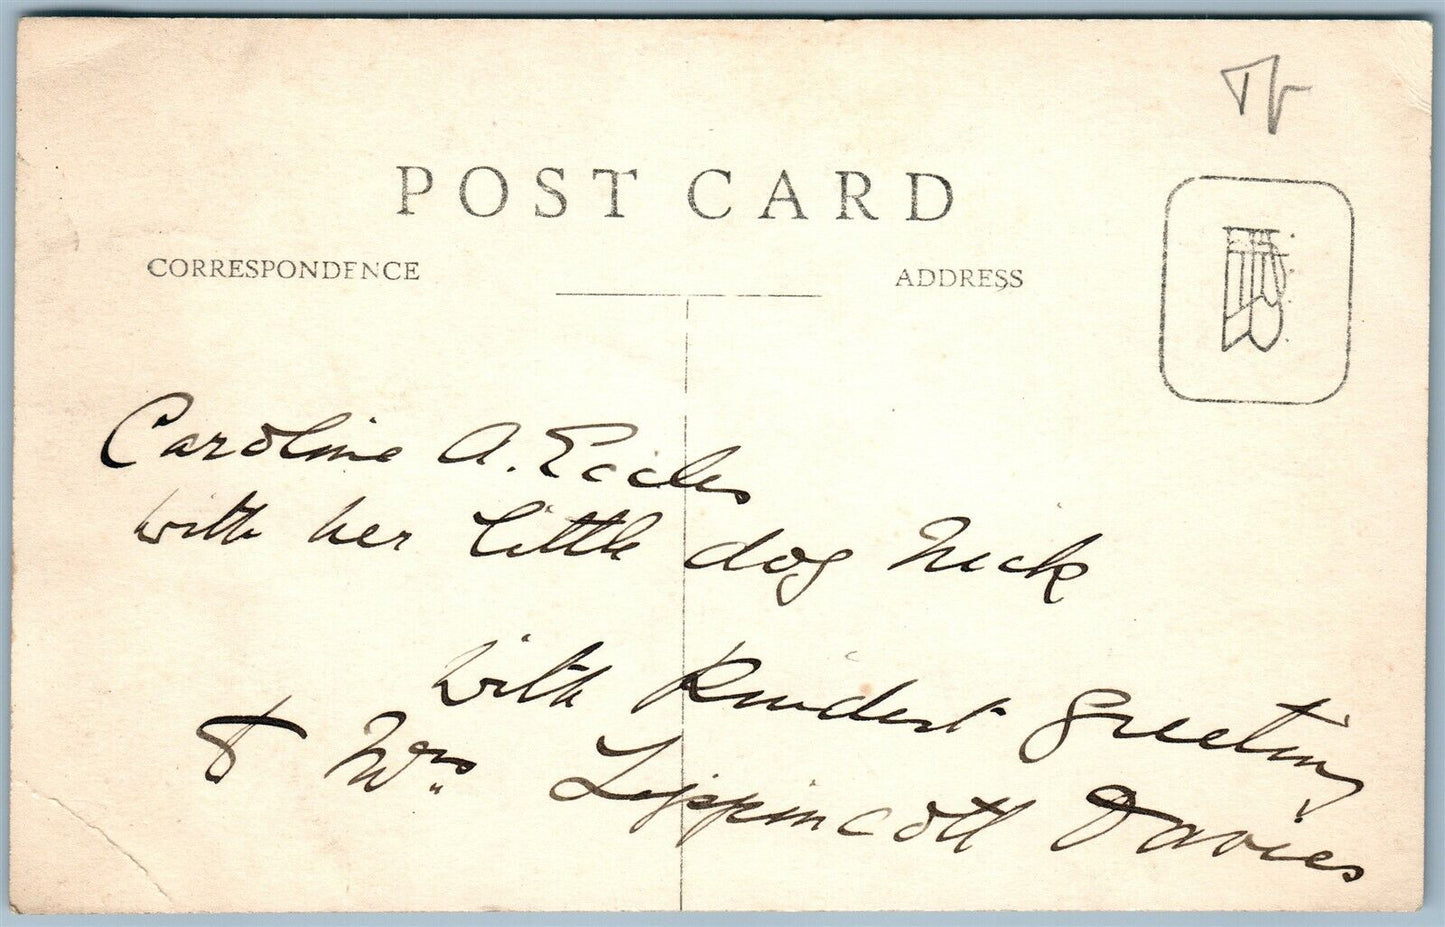 POST CARD
CORRESPONDENCE
ADDRESS
Caroline A. Eccles
with her little dog Nick
with Kindest Greeting
to Mrs Lippincott Davies